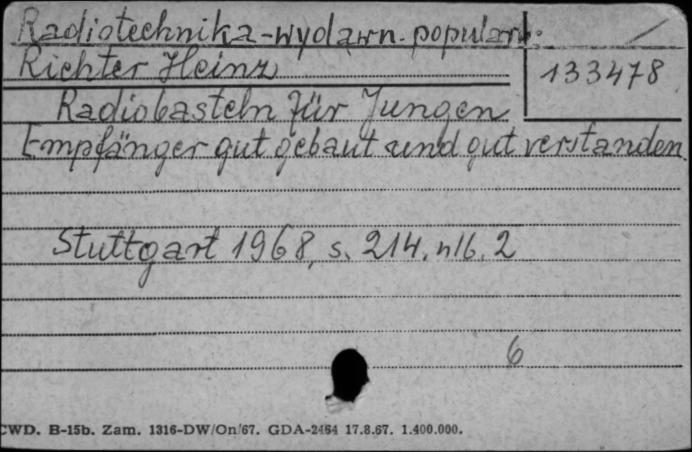 Radiotechnika-wydawn. popularn.
Richter Heinz
133478
Radiobasteln für Jungen
Empfänger gut gebaut und gut verstanden.
Stuttgart 1968, s. 214, nlb. 2
6
CWD. B-15b. Zam. 1316-DW/On/67. GDA-2464 17.8.67. 1.400.000.